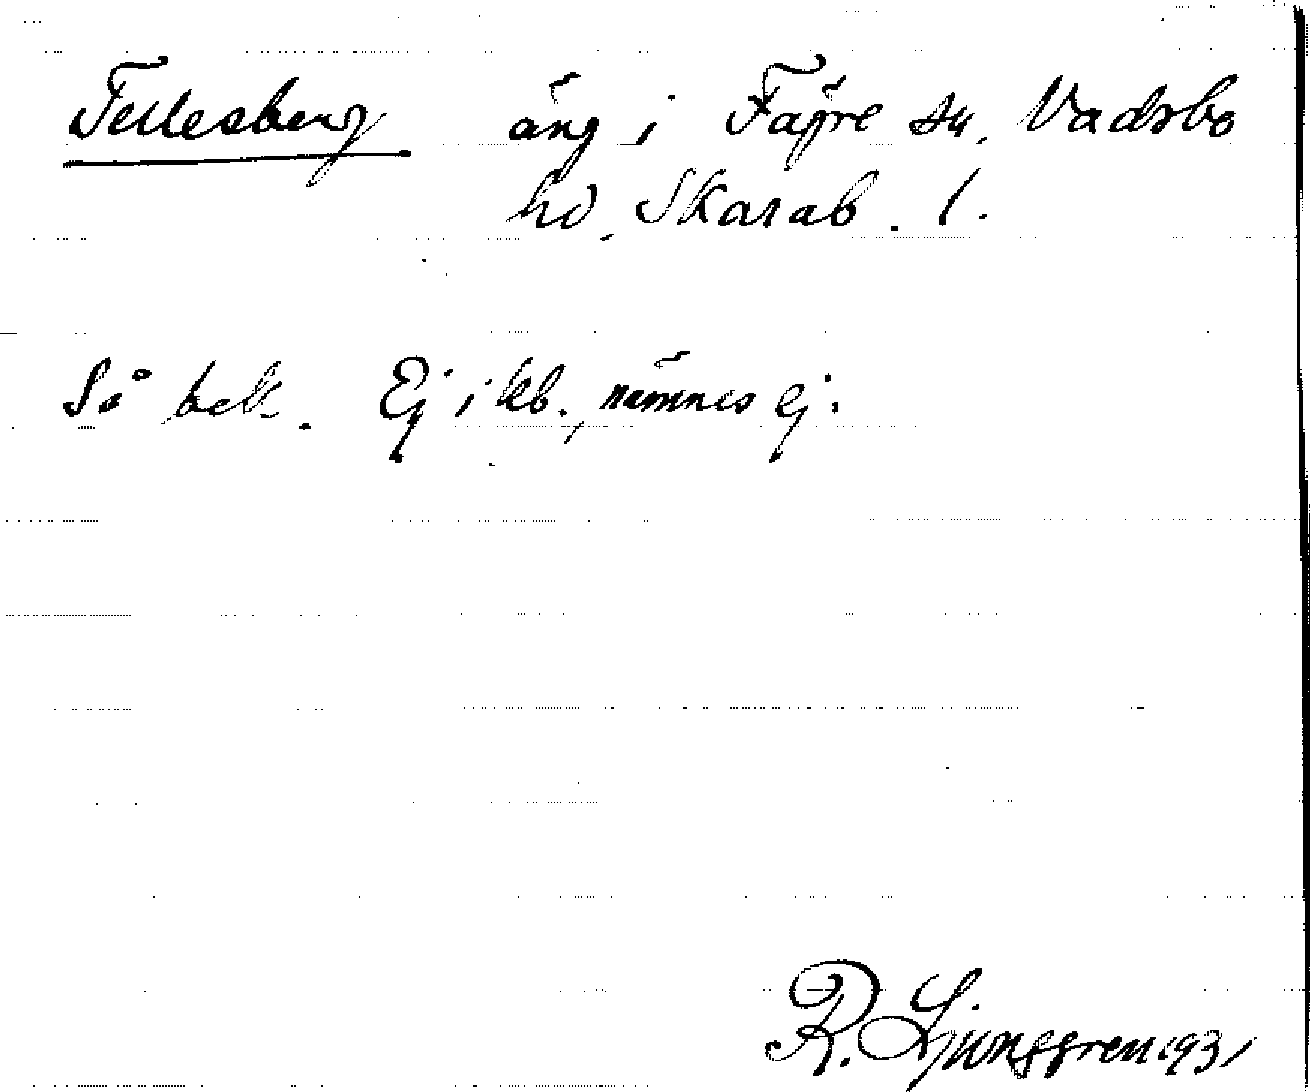 Tellesberg äng i Fägre sn, Vadsbo
hd, Skarab. l.
Så bek. Ej i kb., nämnes ej.
R. Ljunggren 1931